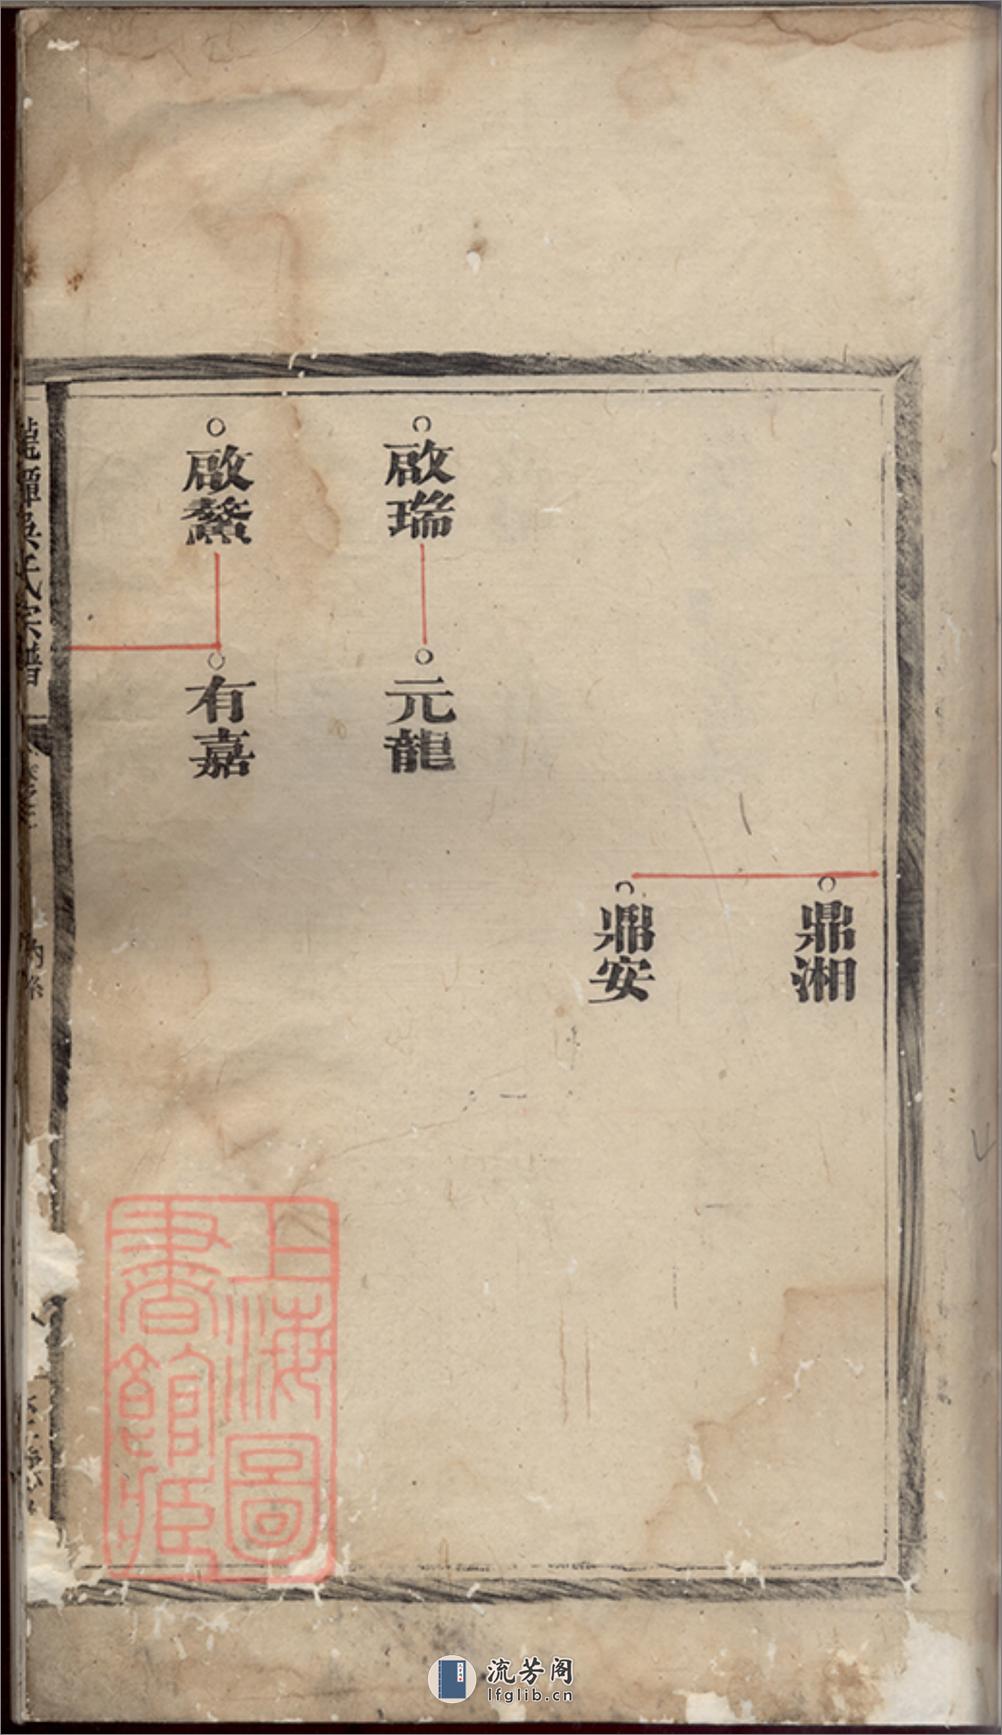 鼎湘
鼎安
啟瑞
元龍
啟鰲
有嘉
龍潭吳氏宗譜
上海圖
書館藏
流芳阁
lfglib.cn